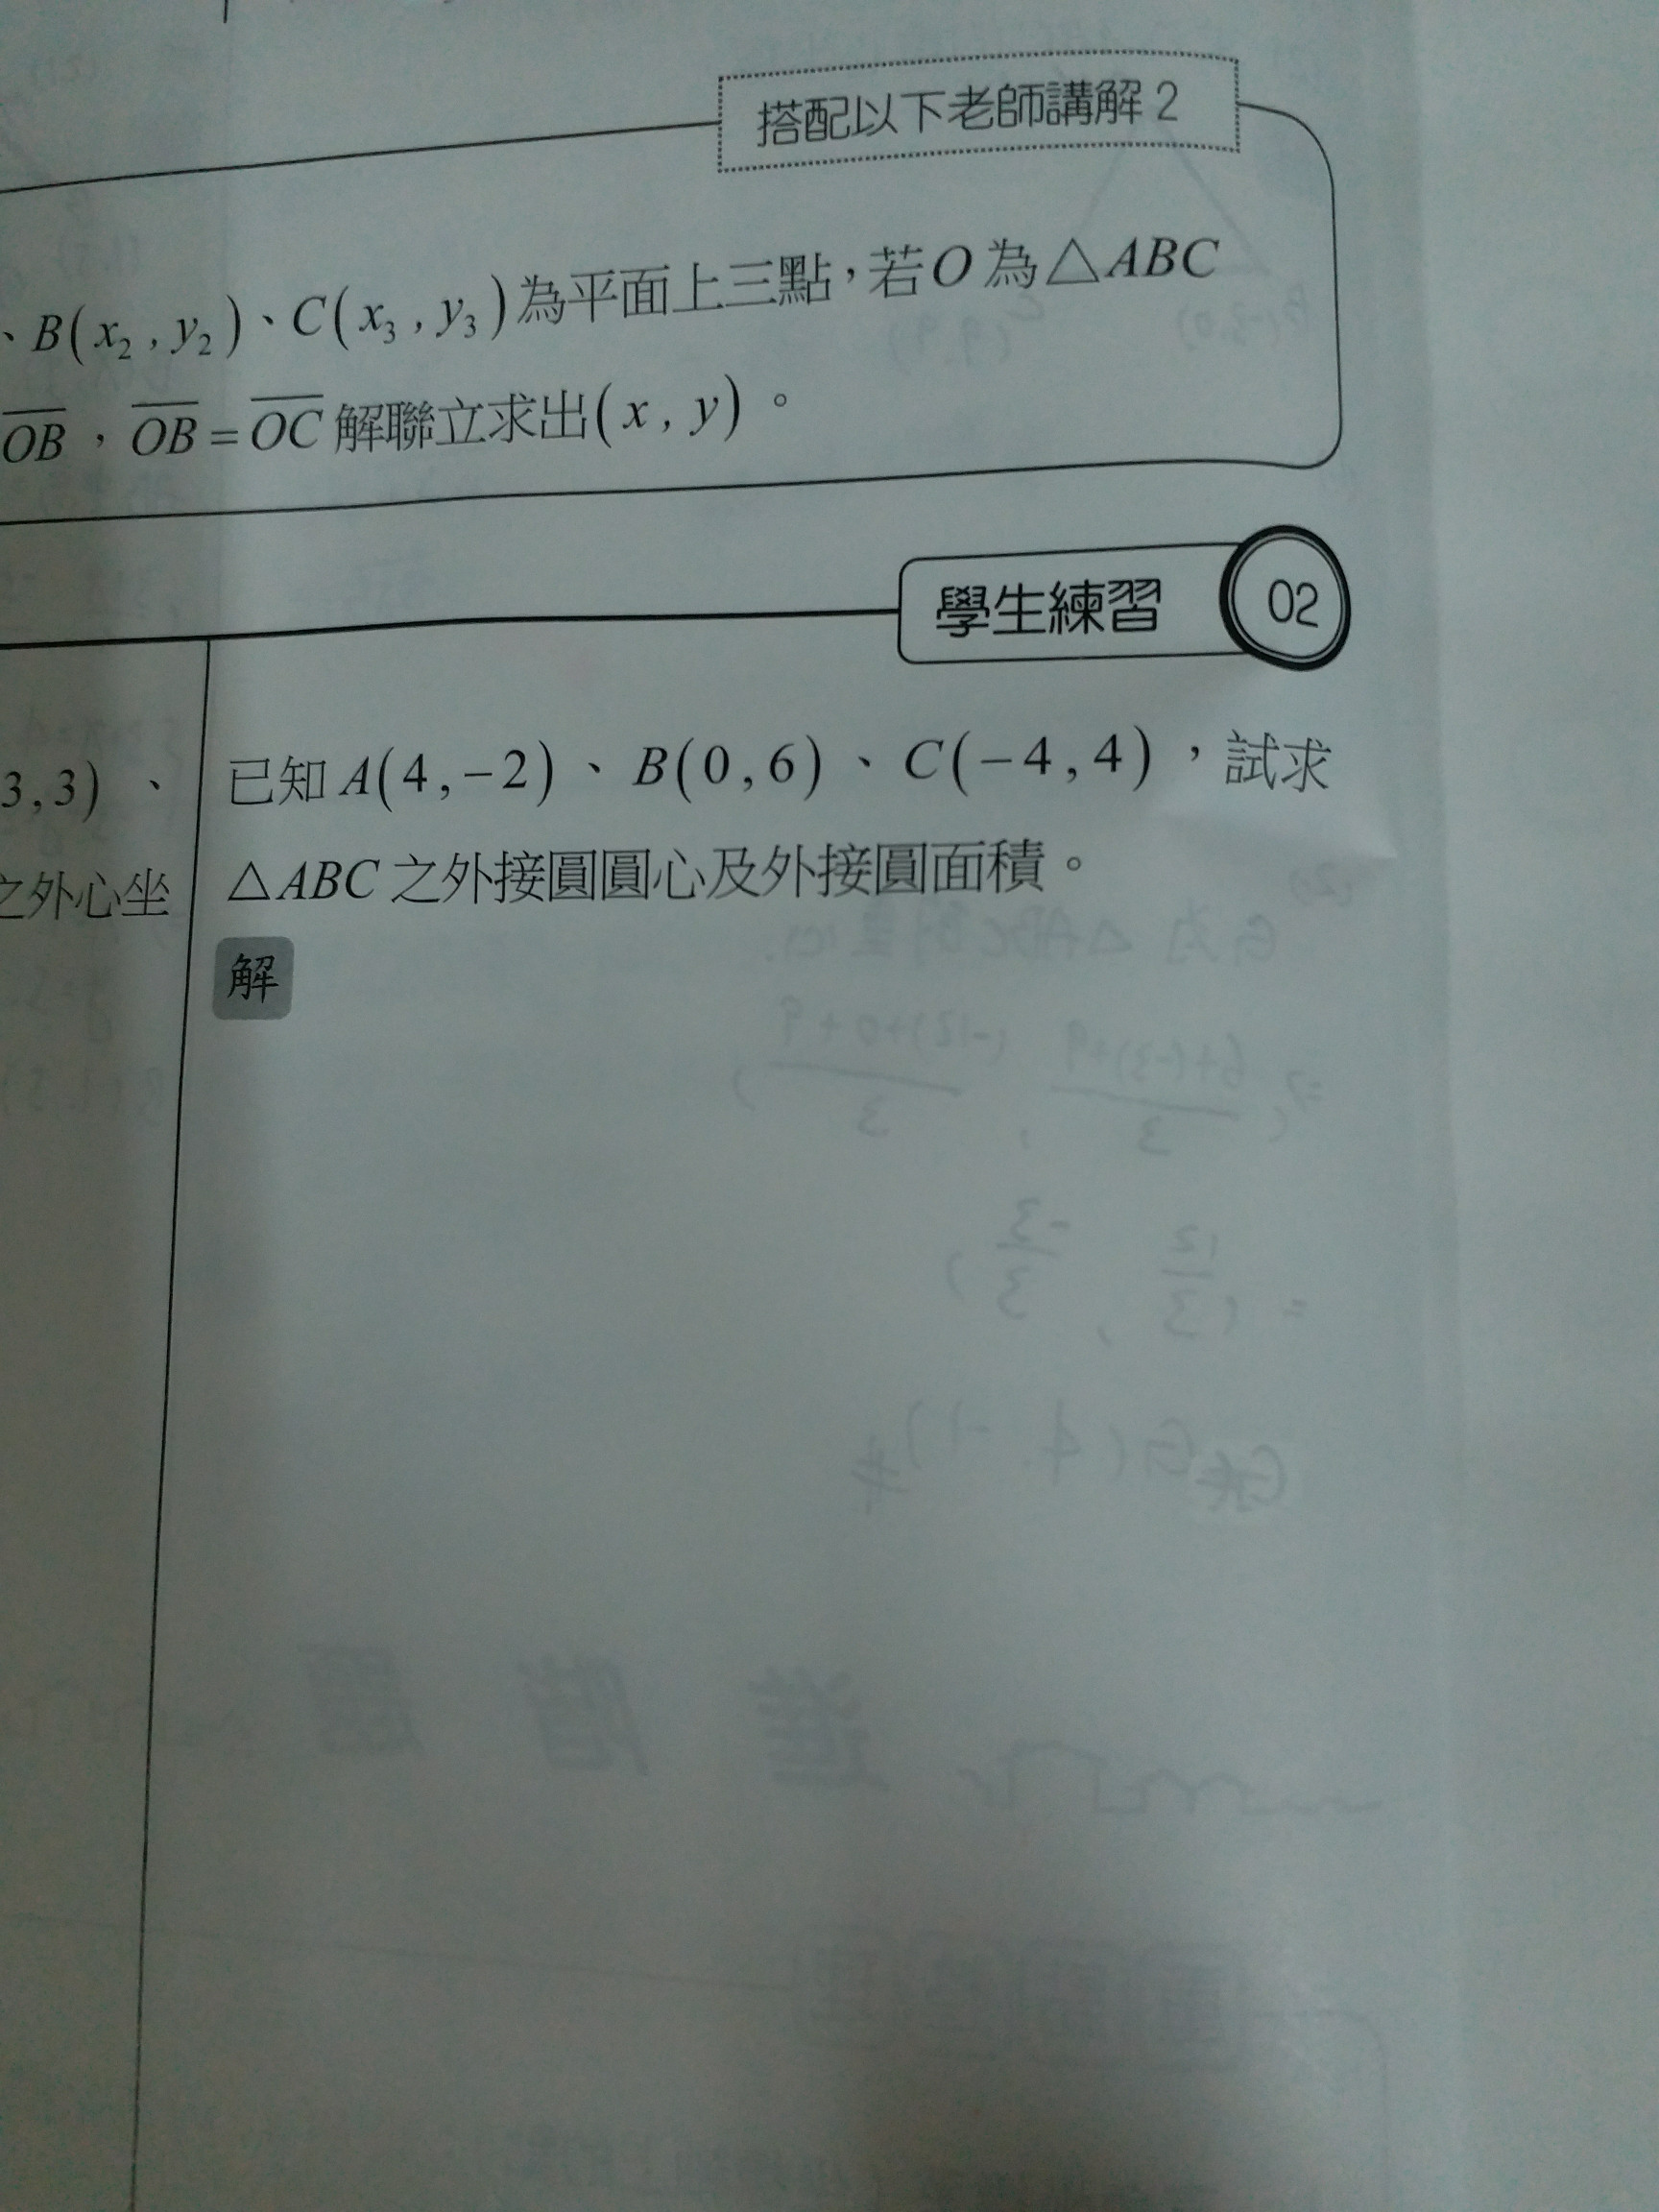 搭配以下老師講解 2
、B(x₂, y₂)、C(x₃, y₃)為平面上三點，若O為△ABC
O̅B̅，O̅B̅=O̅C̅解聯立求出(x, y)。
學生練習 02
3,3)、
之外心坐
已知A(4,−2)、B(0,6)、C(−4,4)，試求
△ABC之外接圓圓心及外接圓面積。
解